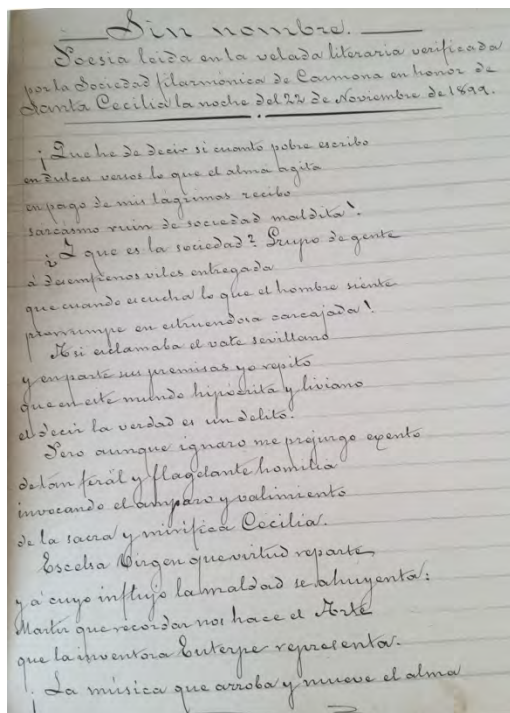 Sin nombre.
Poesia leida en la velada literaria verificada
por la Sociedad filarmónica de Carmona en honor de
Santa Cecilia la noche del 22 de Noviembre de 1899.
¡Que he de decir si cuanto pobre escribo
en dulces versos lo que el alma agita
en pago de mis lágrimas recibo
sarcásmo ruin de sociedad maldita!
¿Y que es la sociedad? Grupo de gente
á desempeños viles entregada
que cuando escucha lo que el hombre siente
prorrumpe en estruendosa carcajada!
Asi esclamaba el vate sevillano
y en parte sus premisas yo repito
que en este mundo hipócrita y liviano
el decir la verdad es un delito.
Pero aunque ignaro me prejuzgo exento
de tan ferál y flagelante homilia
invocando el amparo y valimiento
de la sacra y mirifica Cecilia.
Escelsa Virgen que virtud reparte
y á cuyo influjo la maldad se ahuyenta:
Martir que recordar nos hace el Arte
que la inventora Euterpe representa.
¡La música que arroba y mueve el alma